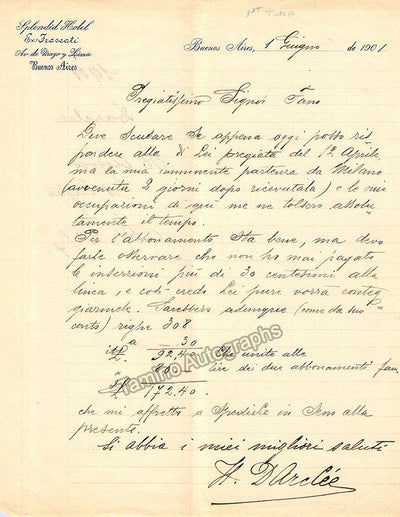 Splendid Hotel
Ex-Frascati
Av. de Mayo y Lima
Buenos Aires
1ST TOSCA
Buenos Aires, 1 Giugno de 1901
Pregiatissimo Signor Fano
Deve scusare se appena oggi posso ris
pondere alla di Lei pregiata del 12 Aprile,
ma la mia imminente partenza da Milano
(avvenuta 2 giorni dopo ricevutala) e le mie
occupazioni di qui me ne tolsero assolu
tamente il tempo.
Per l'abbonamento sta bene, ma devo
farle osservare che non ho mai pagato
le inserzioni più di 30 centesimi alla
linea, e così credo Lei pure vorrà conteg
giarmele. Sarebbero adunque (come da suo
conto) righe 308
a 30
£. 92,40 che unite alle
" 80 lire dei due abbonamenti fan.
£ 172.40.
che mi affretto a spedirle in seno alla
presente.
Si abbia i miei migliori saluti
H. Darclée
Tamino Autographs